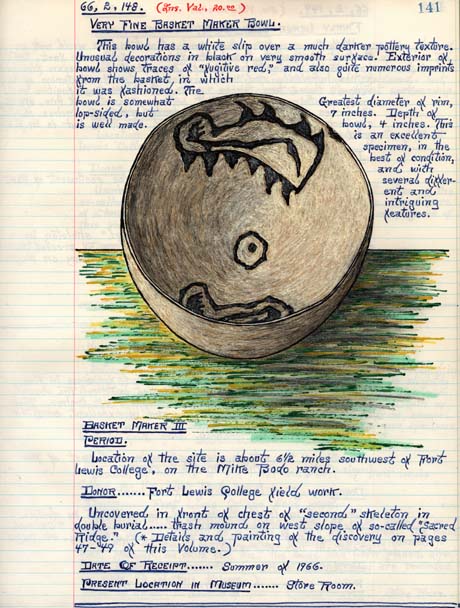 66, 2, 148. (Ins. Val., $0.00)
141
Very Fine Basket Maker Bowl.
This bowl has a white slip over a much darker pottery texture.
Unusual decorations in black on very smooth surface. Exterior of
bowl shows traces of "fugitive red," and also quite numerous imprints
from the basket, in which
it was fashioned. The
bowl is somewhat
lop-sided, but
is well made.
Greatest diameter of rim,
7 inches. Depth of
bowl, 4 inches. This
is an excellent
specimen, in the
best of condition,
and with
several differ-
ent and
intriguing
features.
Basket Maker III
Period.
Location of the site is about 6½ miles southwest of Fort
Lewis College, on the Mike Bodo ranch.
Donor....... Fort Lewis College field work.
Uncovered in front of chest of "second" skeleton in
double burial..... trash mound, on west slope of so-called "Sacred
Ridge." (* Details and painting of the discovery on pages
47-49 of this Volume.)
Date Of Receipt....... Summer of 1966.
Present Location in Museum....... Store Room.